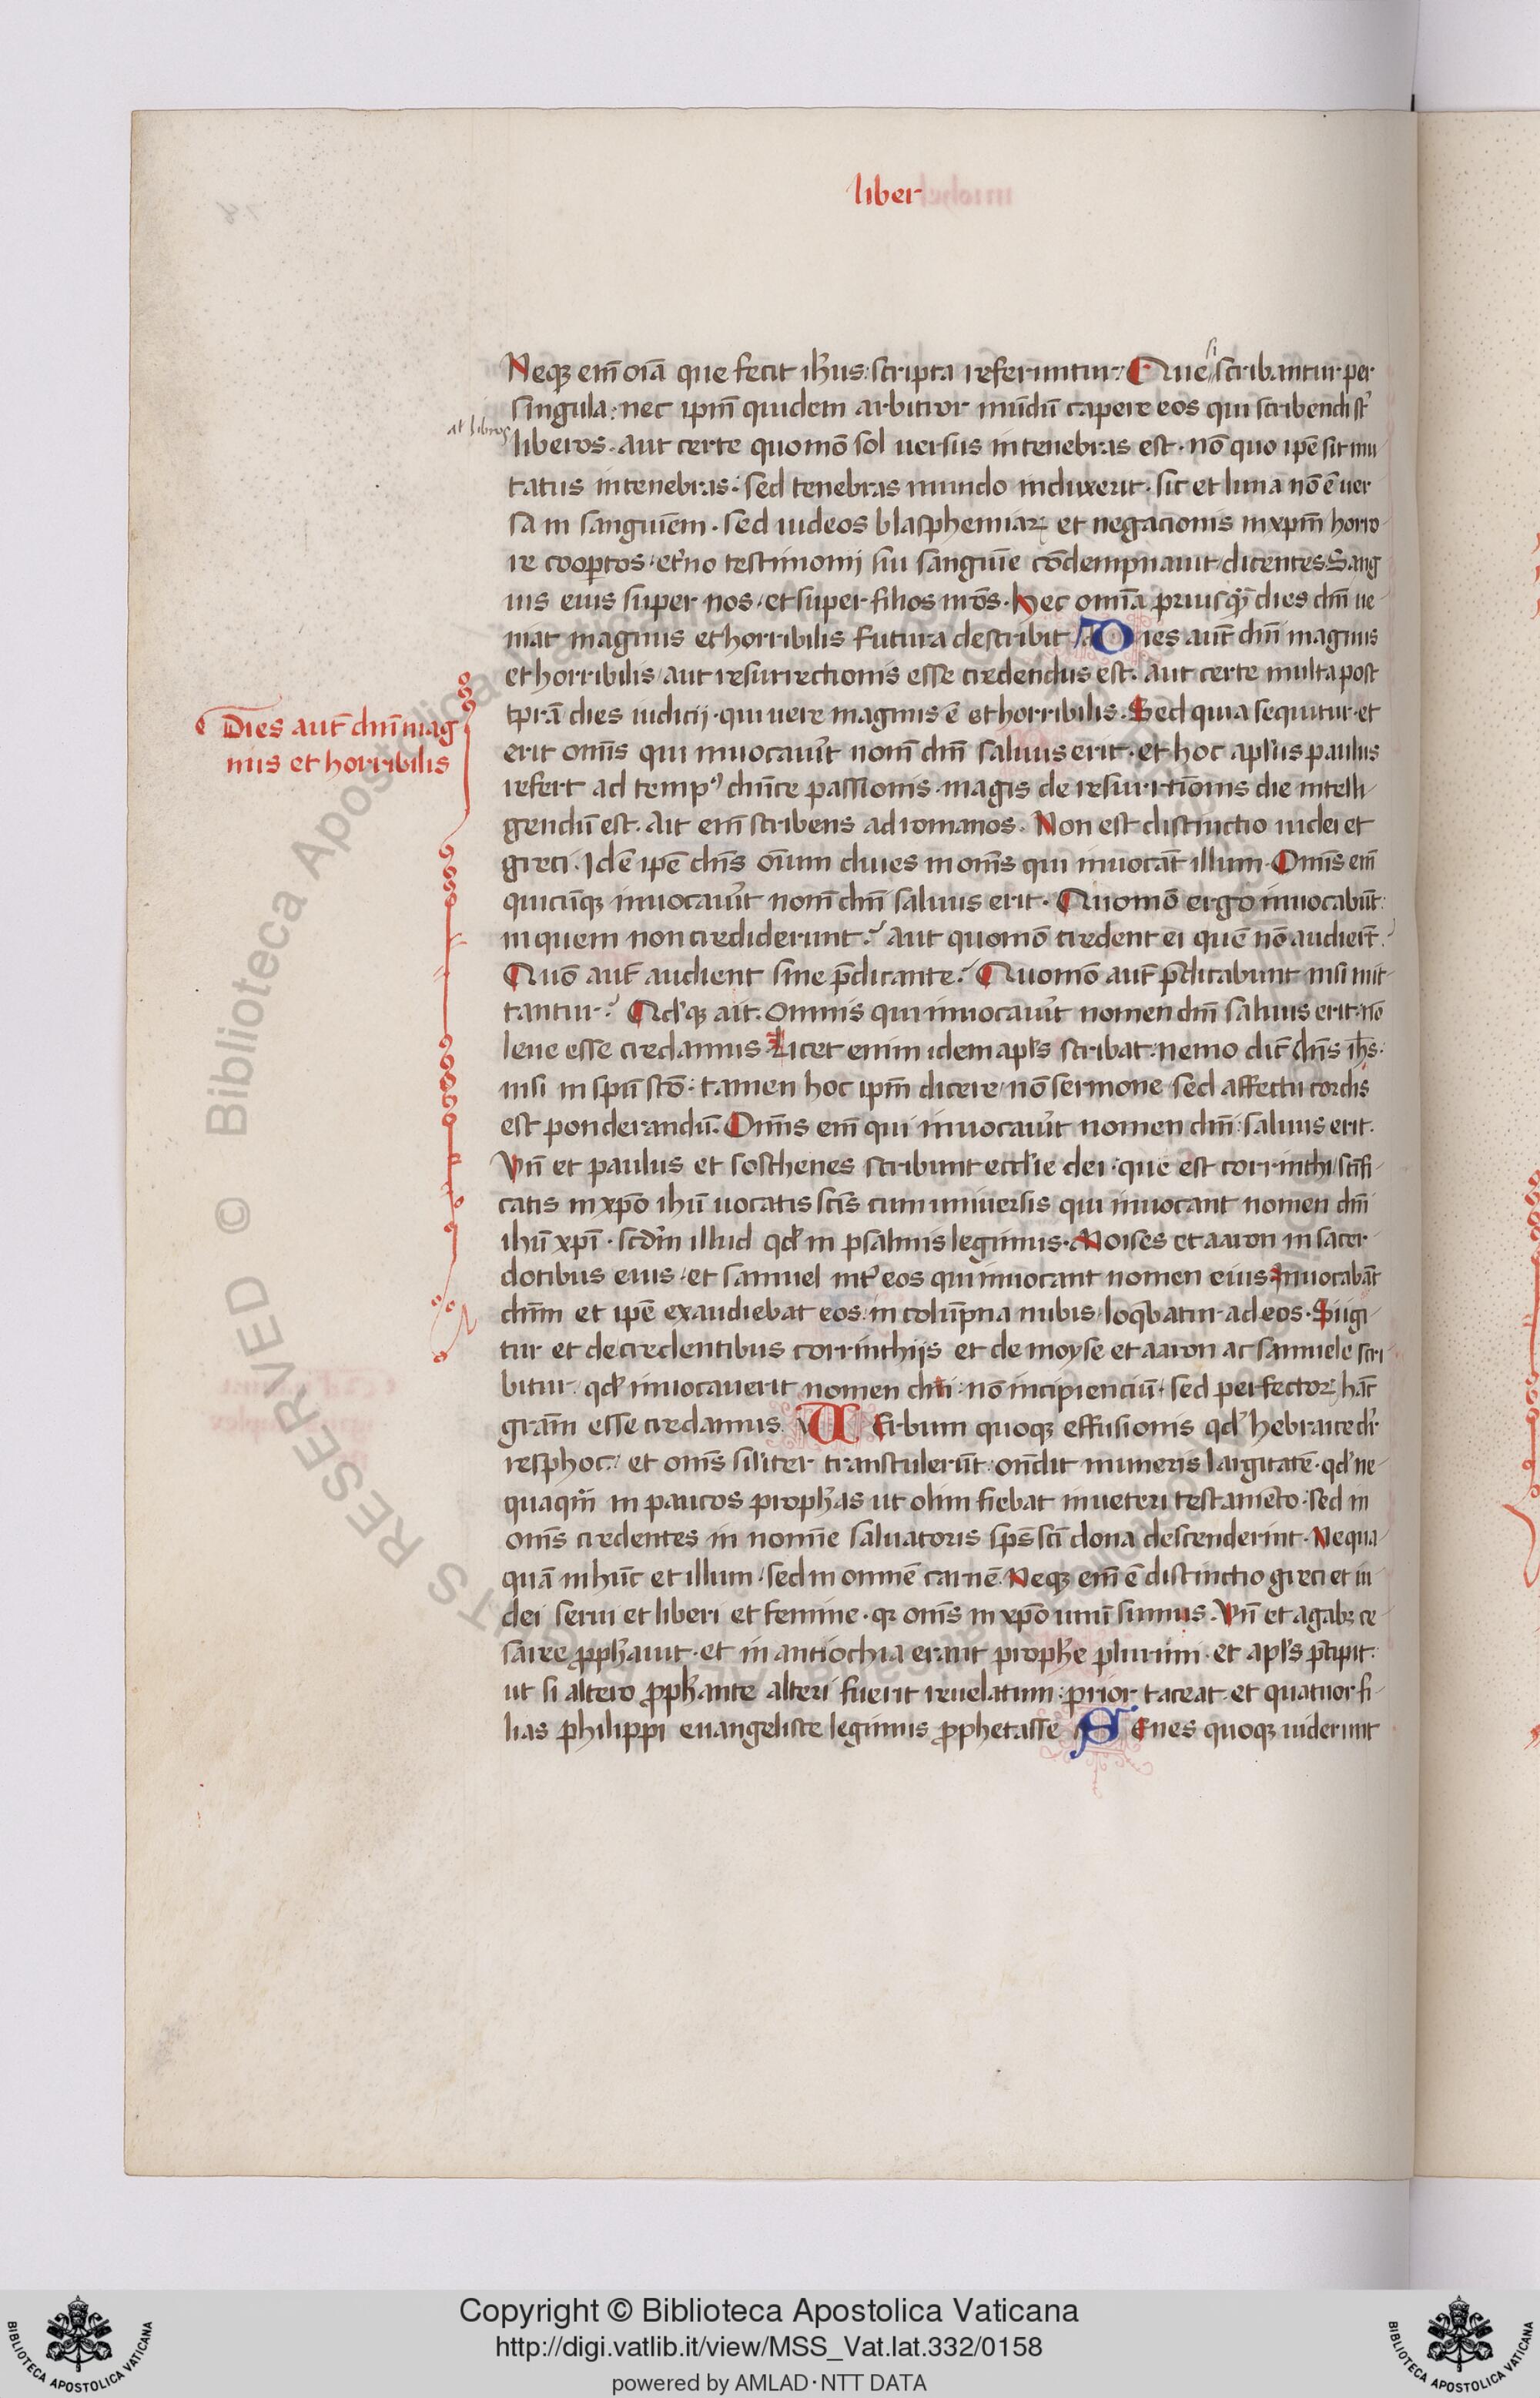 liber
Neqꝫ em̄ oīa que fecit ihꝰus: scripta referuntur: Que si scribantur per
singula: nec ipm̄ quidem arbitror mūdū capere eos qui scribendi st̄
al libros
liberos. aut certe quomō sol uersus in tenebras est. nō quo ipē sit mu
tatus in tenebras: sed tenebras mundo induxerit. sic et luna nō ē uer
sa in sanguinem. sed iudeos blasphemiaꝝ et negacionis in xp̄m horro
re cooptos. et̄no testimonij sui sanguīe cōdempnauit dicentes Sang
uis eius super nos. et super filios nr̄os. Hec omīa priusq̄ dies dn̄i ue
niat magnus et horribilis futura describit Dies aut̄ dn̄i magnus
et horribilis aut resurrectionis esse credendus est. aut certe multa post
tp̄ra dies iudicij. qui uere magnus ē et horribilis. Sed quia sequitur. et
Dies aut̄ dn̄i mag
nus et horribilis
erit omīs qui inuocauīt nomē dn̄i saluus erit. et hoc apl̄us paulus
refert ad tempꝰ dn̄ice passionis. magis de resurrectīonis die intelli
gendū est. Ait em̄ scribens ad romanos. Non est distinctio iudei et
greci. Idē ipē dn̄s oīum diues in omēs qui inuocāt illum. Omīs em̄
quicūqꝫ inuocauīt nomē dn̄i saluus erit. Quomō ergo inuocabūt
in quem non crediderunt? aut quomō credent ei quē nō audierūt?
Quō aut̄ audient sine p̄dicante? Quomō aut̄ p̄dicabunt nisi mit
tantur? Adꝰqꝫ ait. Omnis qui inuocauīt nomen dn̄i saluus erit. nō
leue esse credamus. Licet enim idem apl̄s scribat. nemo dic̄ dn̄s ih̄s.
nisi in sp̄u sc̄o: tamen hoc ipm̄ dicere nō sermone sed affectu cordis
est ponderandū. Omīs em̄ qui inuocauīt nomen dn̄i: saluus erit.
Vn̄ et paulus et sosthenes scribunt eccl̄ie dei: que est corrinthi sc̄ifi
catis in xp̄o ihū uocatis sc̄is cum uniuersis qui inuocant nomen dn̄i
ihū xp̄i. scd̄m illud qd̄ in psalmis legimus. Moises et aaron in sacer
dotibus eius. et samuel int̄ eos qui inuocant nomen eius Inuocabāt
dn̄m et ipē exaudiebat eos. in colūpna nubis loq̄batur ad eos. Si igi
tur et de credentibus corrinthijs et de moyse et aaron ac samuele scri
bitur. qd̄ inuocauerit nomen dn̄i: nō incipienciū. sed perfectoꝝ hāc
grām esse credamus. Verbum quoqꝫ effusionis qd̄ hebraice dr̄
resphoc. et omēs sil̄iter transtulerūt: ondīt muneris largitatē. qd̄ ne
quaqm̄ in paucos proph̄as ut olim fiebat in ueteri testamēto: sed in
omēs credentes in nomīe saluatoris sp̄s sc̄i dona descenderint. Nequa
quā in hūc et illum. sed in omnē carnē. Neqꝫ em̄ ē distinctio greci et iu
dei serui et liberi et femine. qꝛ omēs in xp̄o unū sumus. Vn̄ et agabꝫ ce
saree ꝓph̄auit. et in antiochia erant proph̄e plurimi. et apl̄s p̄cipit:
ut si altero ꝓph̄ante alteri fuerit reuelatum: prior taceat. et quatuor fi
lias philippi euangeliste legimus ꝓphetasse Senes quoqꝫ uiderunt
Copyright © Biblioteca Apostolica Vaticana
http://digi.vatlib.it/view/MSS_Vat.lat.332/0158
powered by AMLAD·NTT DATA